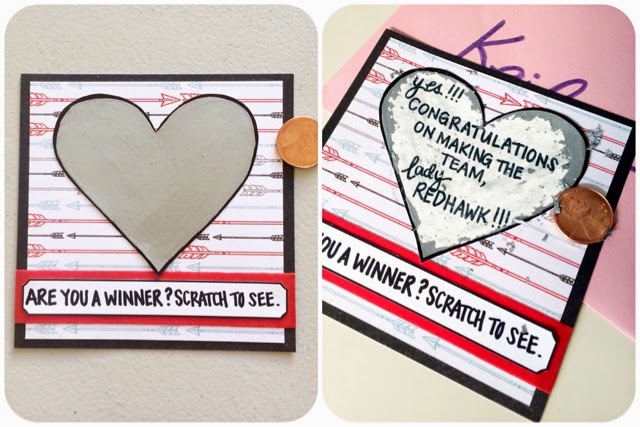 ARE YOU A WINNER? SCRATCH TO SEE.
yes!!!
CONGRATULATIONS
ON MAKING THE
TEAM,
lady
REDHAWK!!!
YOU A WINNER? SCRATCH TO SEE.